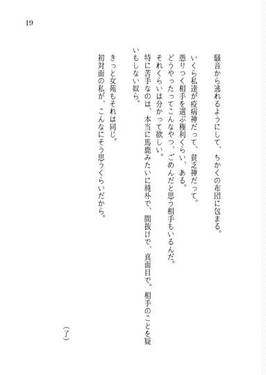 19
騒音から逃れるようにして、ちかくの布団に包まる。
いくら私達が疫病神だって、貧乏神だって。
憑りつく相手を選ぶ権利くらい、ある。
どうやったってこんなやつ、ごめんだと思う相手もいるんだ。
それくらいは分かって欲しい。
特に苦手なのは、本当に馬鹿みたいに純朴で、間抜けで、真面目で。相手のことを疑
いもしない奴ら。
きっと女苑もそれは同じ。
初対面の私が、こんなにそう思うくらいだから。
(了)